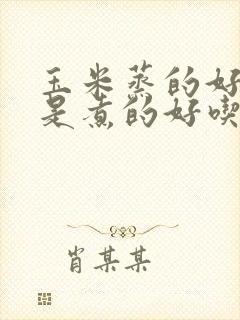 玉米蒸的好
是煮的好喫
肖某某